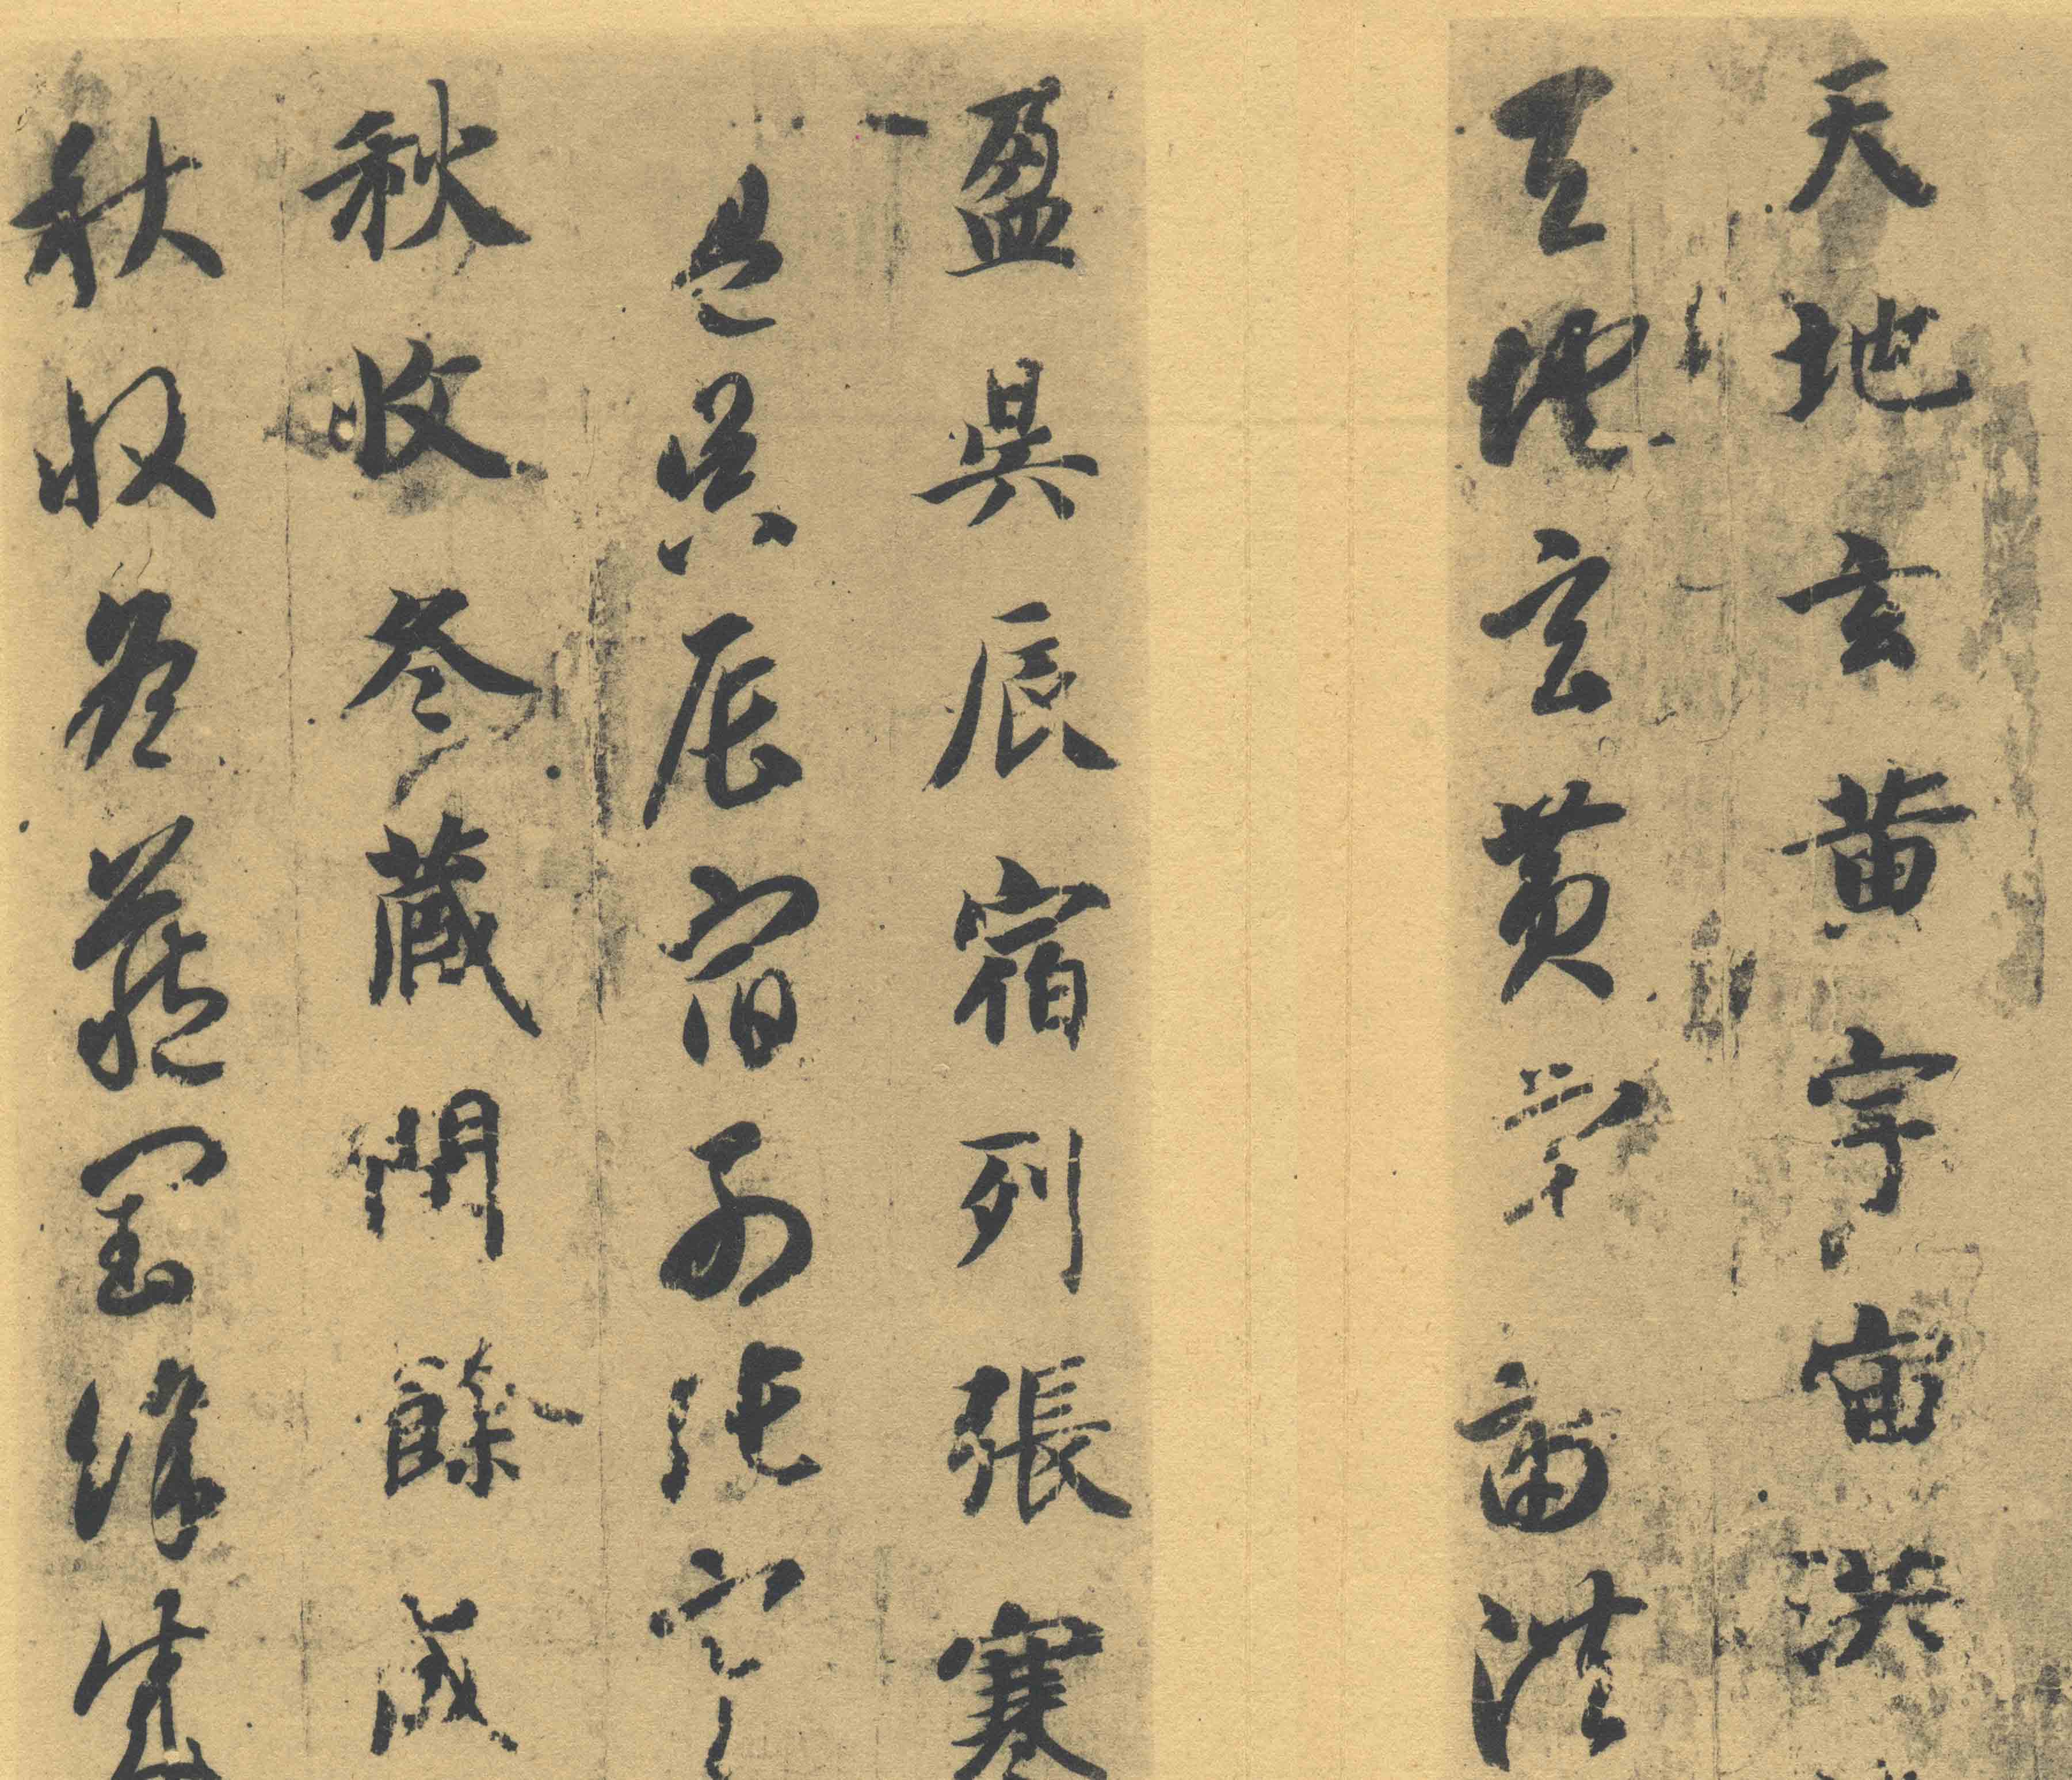 天地玄黄宇宙洪
天地玄黄宇宙洪
盈昃辰宿列張寒
盈昃辰宿列張寒
秋收冬藏閏餘成
秋收冬藏閏餘成